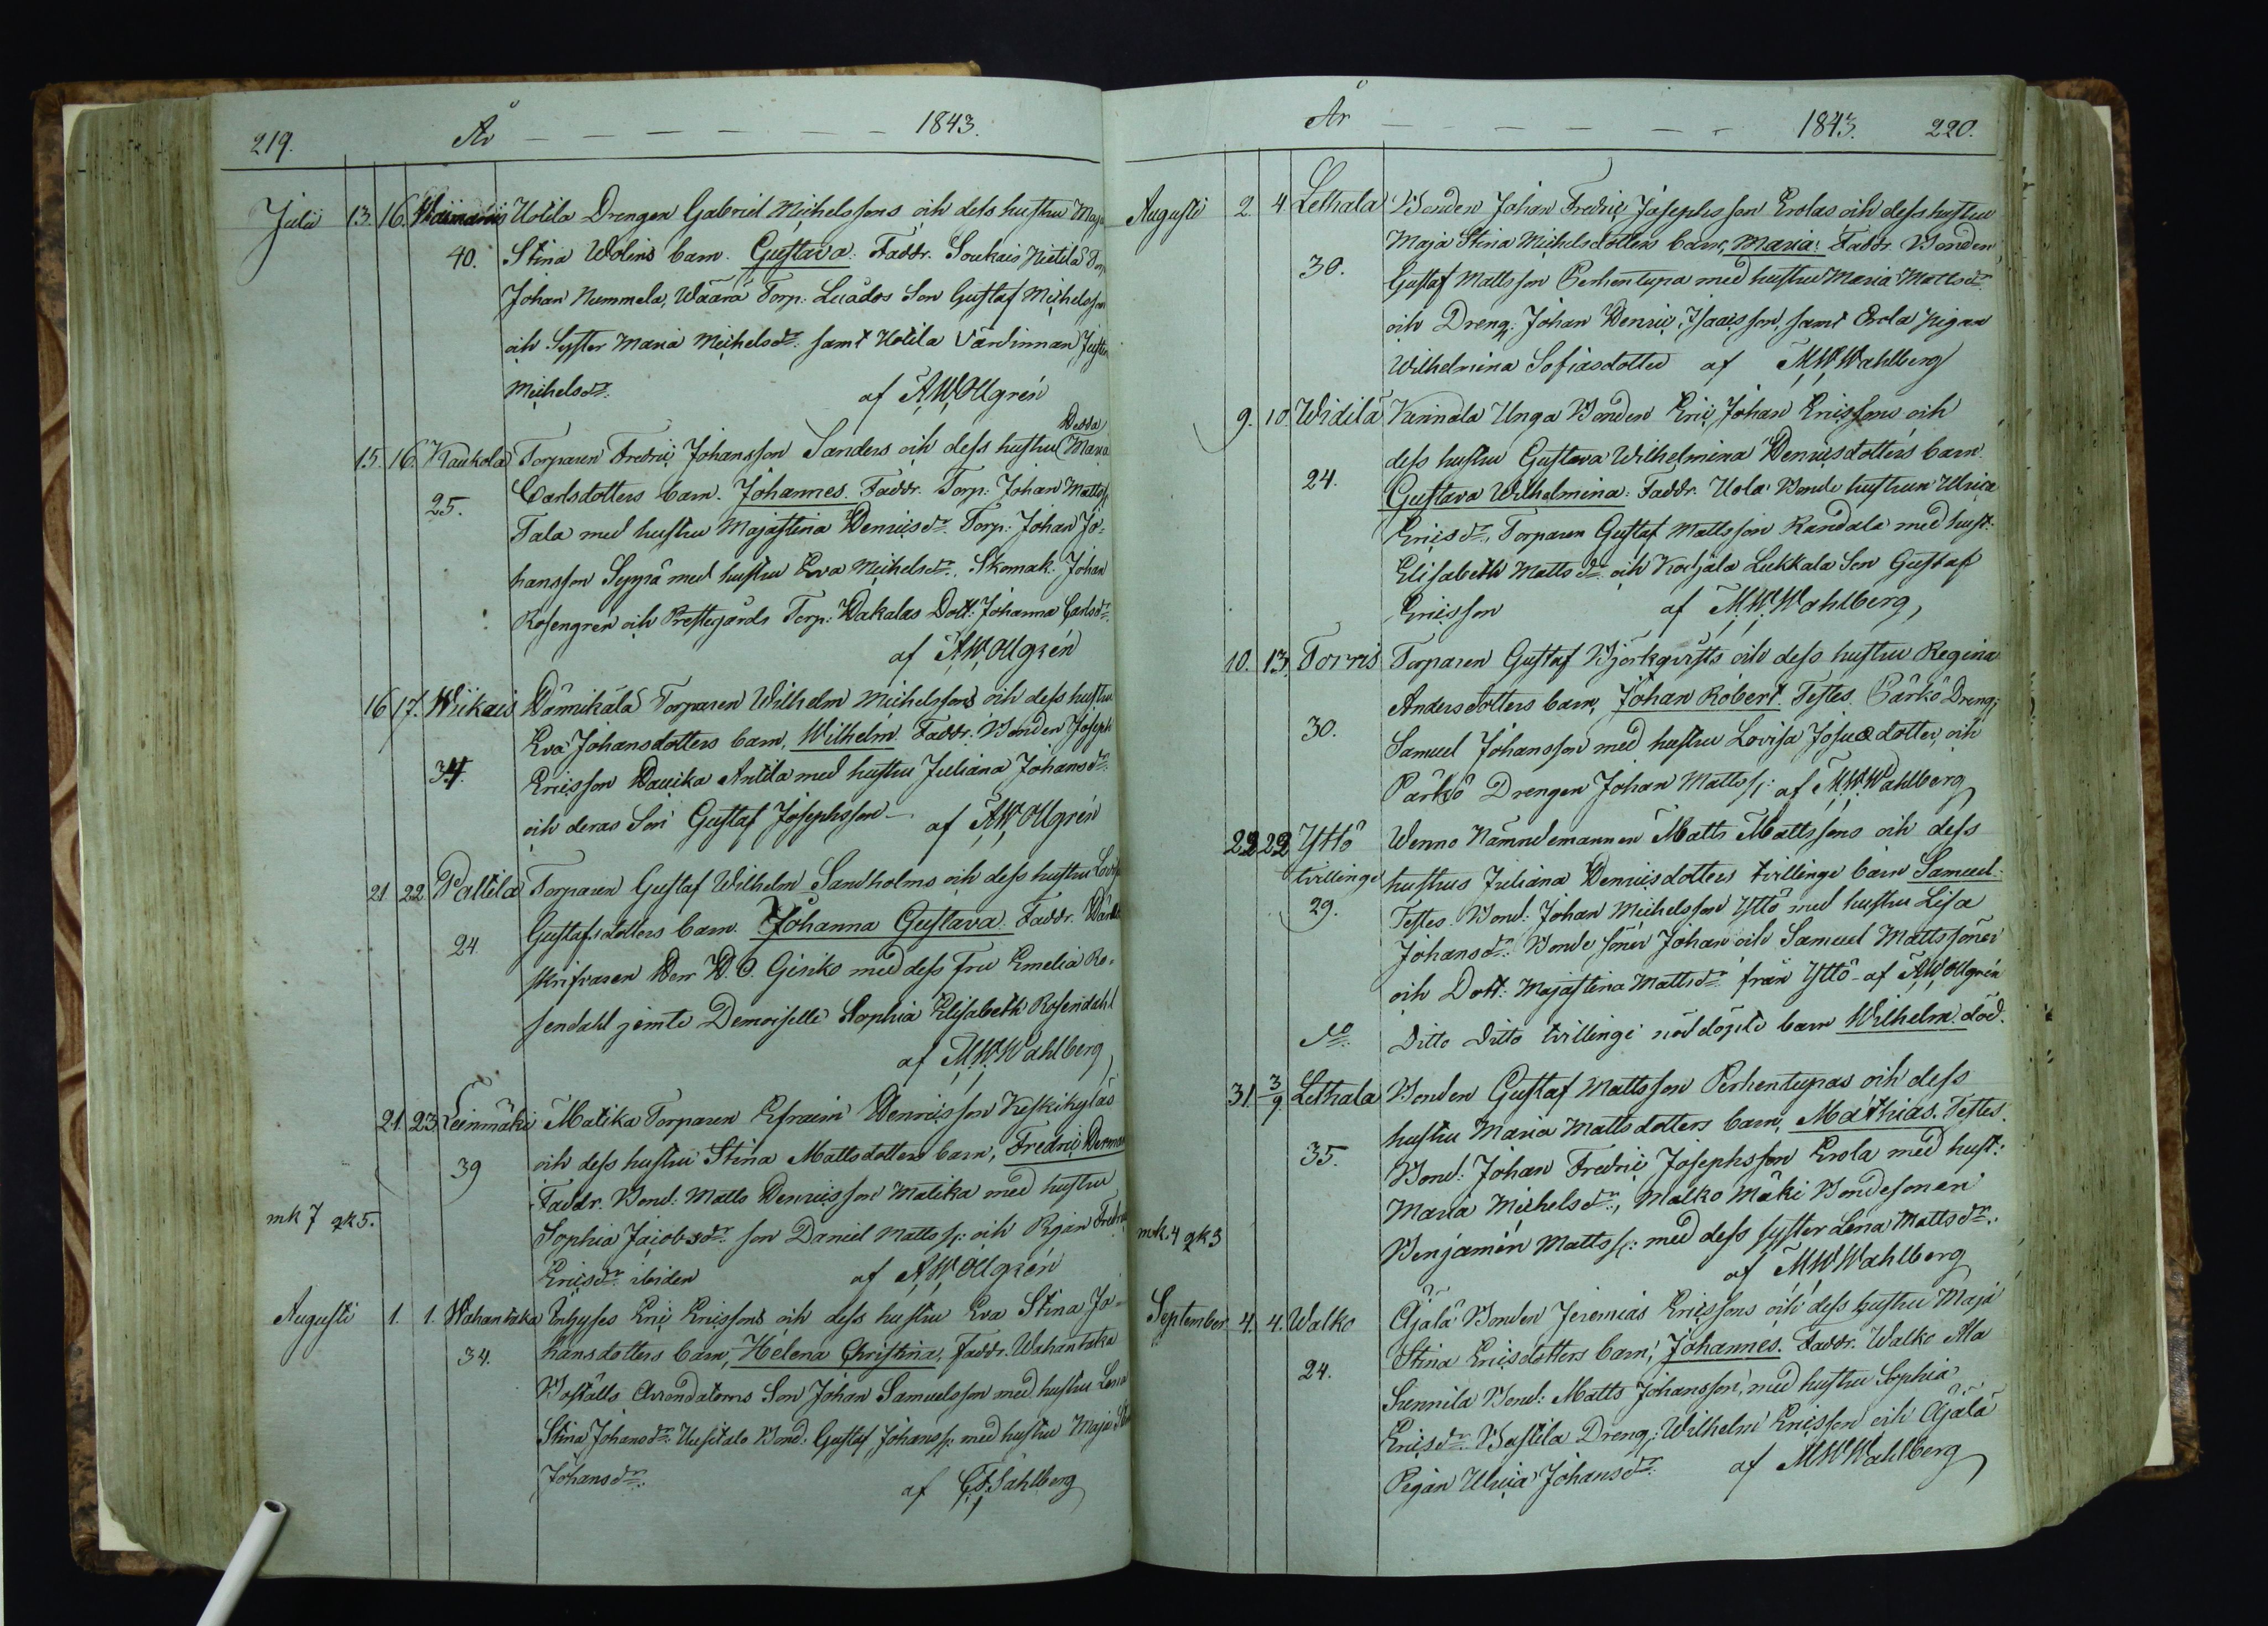 219. År — — — — — — 1843.
Julii 13. 16. Uotila Drengen Gabriel Michelssons och dess hustru Maja
40. Stina Wolins barn. Gustava. Faddr. Soukais Nietilä
Johan Nummela, Wäärä Torp. Son Gustaf Michelsson
och Syster Maria Michelsdr. samt Uotila värdinnan
Michelsdr. af A.W. Ollgrén
Hedda
15. 16. Kaukola Torparen Fredric Johansson Sanders och dess hustru Maria
25. Carlsdotters barn. Johannes. Faddr. Torp. Johan Mattss:
Tala med hustru Majastina Henricsdr. Torp: Johan Jo-
hansson Seppä med hustru Eva Michelsdr. Skomak. Johan
Rosengren och Prestegårds Torp. Hakalas Dott: Johanna Carlsdr.
af A.W. Ollgrén
16 17. Wiikais Torparen Wilhelm Michelssons och dess hustru
34. Eva Johansdotters barn, Wilhelm. Faddr. Bonden Joseph
Ericsson Antila med hustru Juliana Johansdr.
och deras Son Gustaf Josephsson — af A.W. Ollgrén
21 22 Paltila Torparen Gustaf Wilhelm Sandholms och dess hustru Lovisa
24 Gustafsdotters barn. Johanna Gustava. Faddr.
skrifvaren Herr H.O. Gisiko med dess Fru Emelia Ro-
sendahl jemte Demoiselle Sophia Elisabeth Rosendahl
af M.W. Wahlberg
21. 23. Leinmäki Matika Torparen Efraim Henricsson Keskikyläs
39 och dess hustru Stina Mattsdotters barn, Fredric Herman
Faddr. Bond: Matts Henricsson Matika med hustru
mk 7 qk 5. Sophia Jacobsdr. son Daniel Mattss: och Pigan
Ericsdr. ibidem af A.W. Ollgrén
Augusti 1. 1. Wahantaka Inhyses Eric Ericssons och dess hustru Eva Stina Jo-
34. hansdotters barn, Helena Christina, Faddr. Wahantaka
Boställs Arrendatorns Son Johan Samuelsson med hustru Lena
Stina Johansdr. Uusitalo Bond: Gustaf Johanss: med hustru Maja
Johansdr. af C.F. Sahlberg
År — — — — — — 1843. 220.
Augusti 2. 4. Lethala Bonden Johan Fredric Josephsson Erolas och dess hustru
Maja Stina Michelsdotters barn, Maria. Faddr. Bonden
30. Gustaf Mattsson Perhentupa med hustru Maria Mattsdr.
och Dreng: Johan Henric Isaacsson, samt Erola pigan
Wilhelmina Sofiasdotter af M.W. Wahlberg
9. 10 Widilä Unga Bonden Eric Johan Ericssons och
dess hustru Gustava Wilhelmina Henricsdotters barn
24. Gustava Wilhelmina: Faddr. Uola Bonde hustrun Ulrica
Ericsdr. Torparen Gustaf Mattsson Randala med hust:
Elisabeth Mattsdr. och Lukkala Son Gustaf
Ericsson af M.W. Wahlberg,
10. 13. Torris Torparen Gustaf Björkqvists och dess hustru Regina
Andersdotters barn, Johan Robert. Testes. Pärkö Dreng:
30. Samuel Johansson med hustru Lovisa Josuædotter, och
Pärkö Drengen Johan Mattss: af M.W. Wahlberg
22 22 Yttö Wenno Nämndemannen Matts Mattssons och dess
tvillinge hustrus Juliana Henricsdotters tvillinge barn Samuel.
29. Testes. Bond: Johan Michelsson Yttö med hustru Lisa
Johansdr. Bonde söner Johan och Samuel Mattssöner
och Dott: Majastina Mattsdr. från Yttö. af A.W. Ollgrén
Do. Ditto Ditto tvillinge nöddöpte barn Wilhelm. död.
31. 3/9. Lethala Bonden Gustaf Mattsson Perhentupas och dess
hustru Maria Mattsdotters barn, Mathias. Testes.
35. Bond: Johan Fredric Josephsson Erola med hust:
Maria Michelsdr., Malko Mäki Bondesonen
mk. 4 qk 3 Benjamin Mattss: med dess syster Lena Mattsdr.
af M.W. Wahlberg
September 4. 4. Walko Äjälä Bonden Jeremias Ericssons och dess hustru Maja
24. Stina Ericsdotters barn, Johannes. Faddr. Walko Ala
Sunnila Bond: Matts Johansson, med hustru Sophia
Ericsdr. Dreng: Wilhelm Ericsson och Äjälä
Pigan Ulrica Johansdr. af M.W. Wahlberg